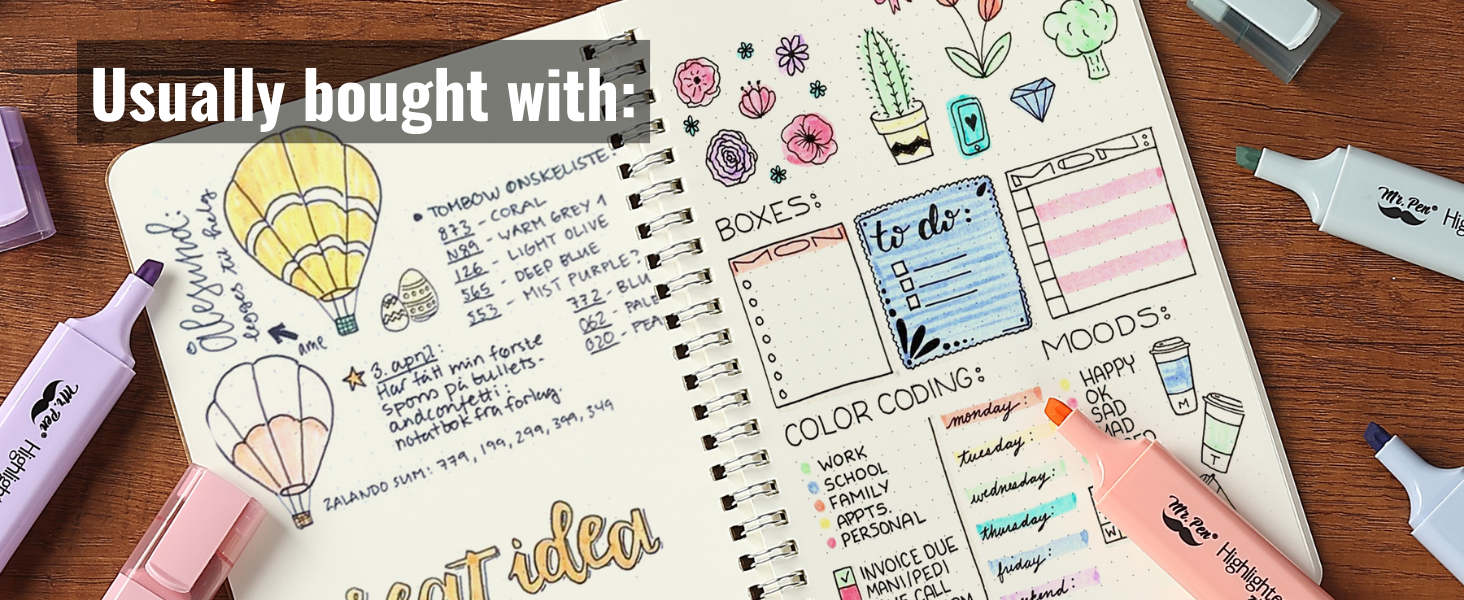 Usually bought with:
Ålesund:
TOMBOW ONSKELISTE:
873 - CORAL
N89 - WARM GREY 1
126 - LIGHT OLIVE
565 - DEEP BLUE
553 - MIST PURPLE?
772 - BLU
062 - PALE
020 - PEA
3. april:
Har fått min første
spons på bullets-
andconfetti:
notatbok fra forlag.
ZALANDO SUM: 779, 199, 299, 399, 349
eat idea
BOXES:
MON
to do:
MON
MOODS:
HAPPY
OK
SAD
MAD
M
T
COLOR CODING:
WORK
SCHOOL
FAMILY
APPTS.
PERSONAL
INVOICE DUE
MANI/PEDI
CALL
monday:
tuesday:
wednesday:
thursday:
friday:
Mr. Pen
Highlight
Mr. Pen
Highlighte
Mr. Pen
Hig